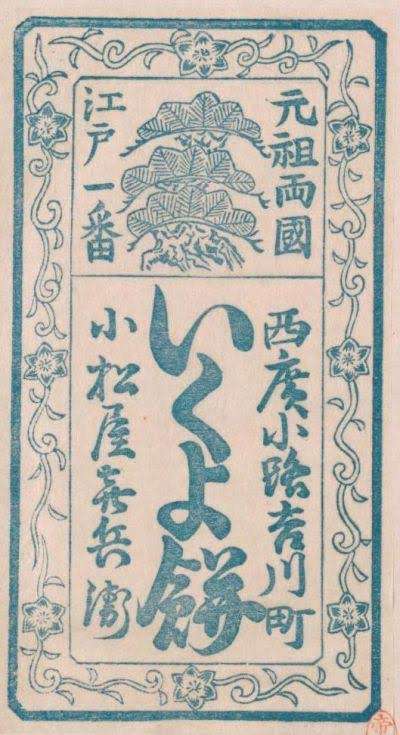 元祖両國
江戸一番
西廣小路吉川町
いくよ餅
小松屋喜兵衛